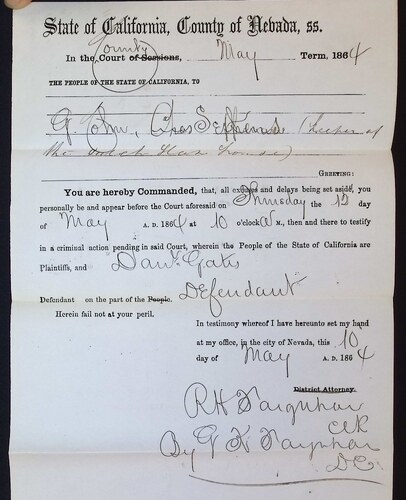 State of California, County of Nevada, ss.
County
In the Court of Sessions, May Term, 1864
THE PEOPLE OF THE STATE OF CALIFORNIA, TO
G. John, Chas (Keeper of
the Hous)
GREETING:
You are hereby Commanded, that, all excuses and delays being set aside, you
personally be and appear before the Court aforesaid on Thursday the 12 day
of May A. D. 1864 at 10 o'clock A M., then and there to testify
in a criminal action pending in said Court, wherein the People of the State of California are
Plaintiffs, and Danl. Gates
Defendant on the part of the People. Defendant
Herein fail not at your peril.
In testimony whereof I have hereunto set my hand
at my office, in the city of Nevada, this 10
day of May A. D. 1864
District Attorney.
R H Farquhar
Clk
By G K Farquhar
D.C.